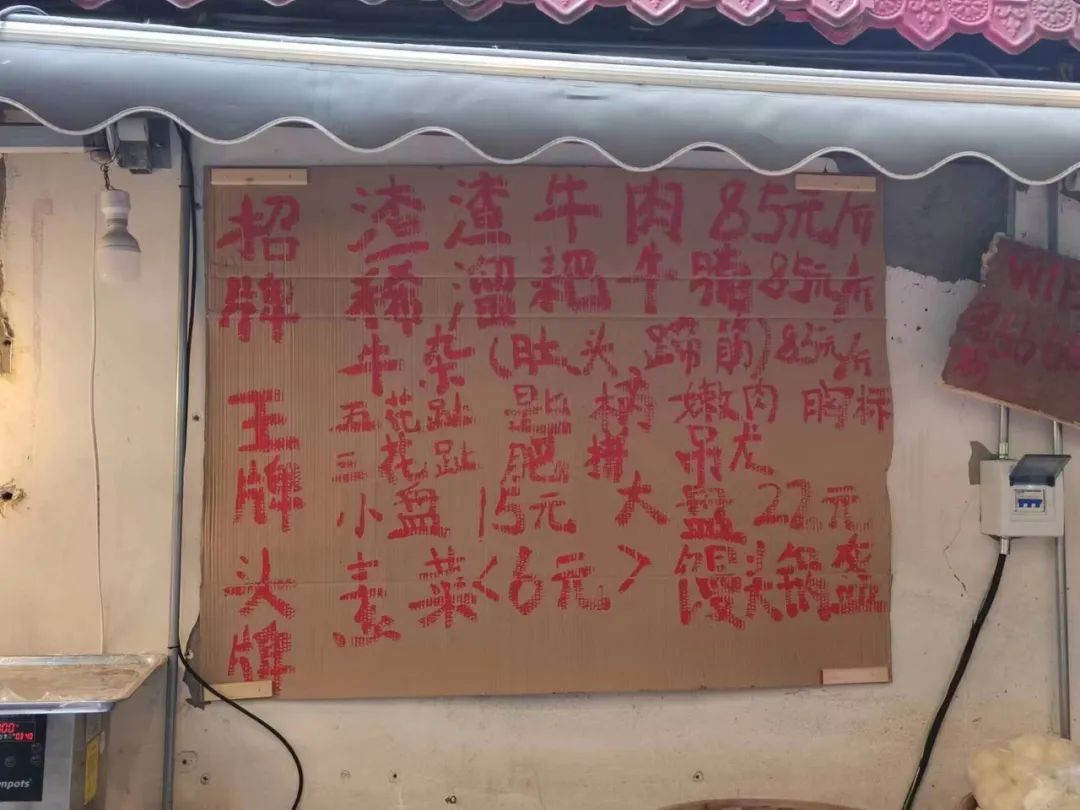 招牌
渣渣牛肉 85元/斤
稀溜粑牛腩 85元/斤
牛杂(肚头 蹄筋) 85元/斤
王牌
五花趾 匙柄 嫩肉 胸标
三花趾 肥拼 吊龙
小盘 15元 大盘 22元
头牌
素菜<6元> 馒头锅盔
WIF